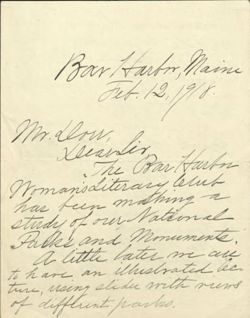 Bar Harbor, Maine
Feb. 12, 1918.
Mr. Dorr,
Dear Sir,
The Bar Harbor
Woman's Literary Club
has been making a
study of our National
Parks and Monuments.
A little later we are
to have an illustrated lec
ture, using slides with views
of different parks.